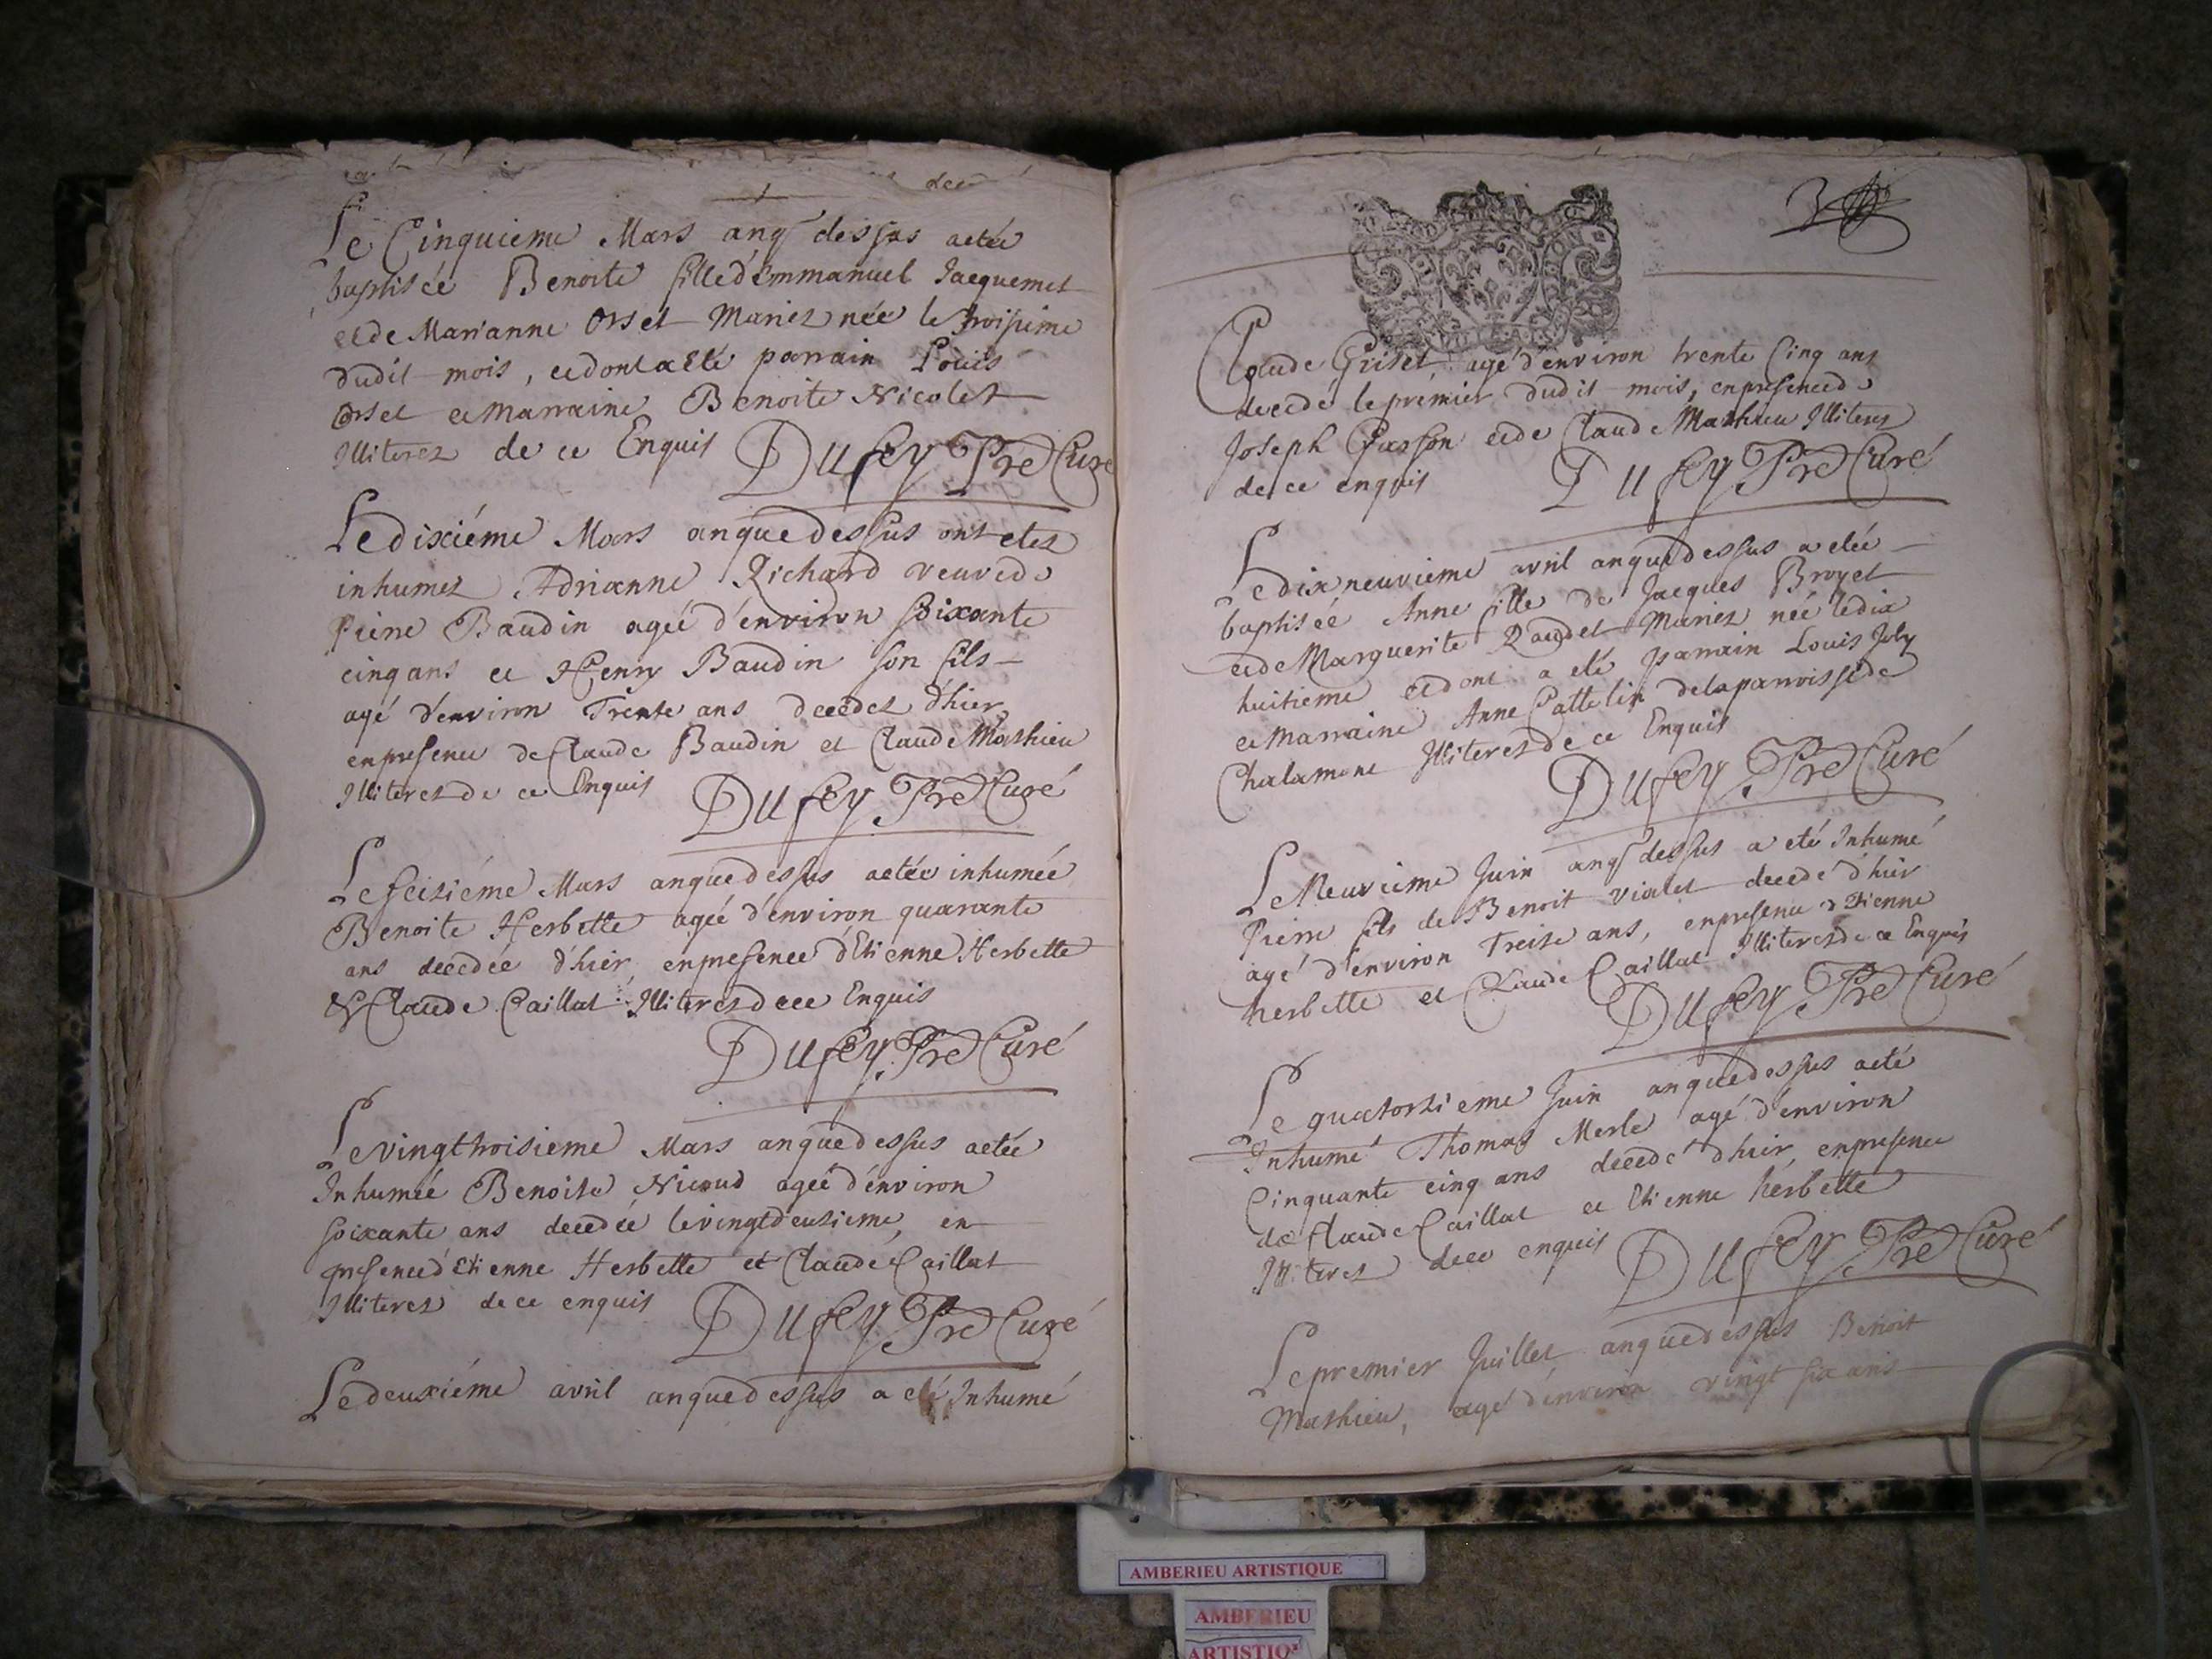 Le Cinquieme Mars anq dessus aetée
baptisée Benoite fille d'emmanuel Jacquemet
etde Marianne Orset Mariez née le troisieme
dudit mois, etdont a Eté parrain Louis
Orset et Marraine Benoite Nicolet
Illiterez de ce Enquis Dufey Pre Curé
Le dixiéme Mars anquedessus ont etez
inhumez Adrianne Richard veuvede
Pierre Baudin agée d'environ soixante
cinq ans et Henry Baudin son fils
agé d'environ Trente ans decedez d'hier
enpresence de Claude Baudin et Claude Mathieu
Illiterez de ce Enquis Dufey Pre Curé
Le seiziéme Mars anquedessus aetée inhumée
Benoite Herbette agée d'environ quarante
ans decedée d'hier, enpresence d'Etienne Herbette
& Claude Caillat Illiterez dece Enquis
Dufey Pre Curé
Le vingtroisieme Mars anquedessus aetée
Inhumée Benoite Nicoud agée d'environ
soixante ans decedée le vingtdeuxieme, en
presence d'Etienne Herbette et Claude Caillat
Illiterez de ce enquis Dufey Pre Curé
Le deuxiéme avril anquedessus a eté Inhumé
Claude Griset, agé d'environ trente Cinq ans
decedé le premier dudit mois, enpresencede
Joseph Chasson etde Claude Mathieu Illiterez
de ce enquis Dufey Pre Curé
Le dix neuvieme avril anquedessus a etée
baptisée Anne fille de Jacques Broyet
etde Marguerite Raudet Mariez née le dix
huitieme etdont a eté parrain Louis Joly
et Marraine Anne Cattelin delaparroissede
Chalamont Illiterez de ce Enquis
Dufey Pre Curé
Le Neuvieme Juin anq dessus a eté Inhumé
Pierre fils de Benoit Vialet decedé d'hier
agé d'environ Treize ans, enpresence d'Etienne
herbette et Claude Caillat Illiterez de ce Enquis
Dufey Pre Curé
Le quatorzieme Juin anquedessus aeté
Inhumé Thomas Merle agé d'environ
Cinquante cinq ans decedé d'hier, enpresence
de Claude Caillat et Etienne herbette
Illiterez dece enquis Dufey Pre Curé
Le premier Juillet anquedessus Benoit
Mathieu, agé d'environ vingt six ans
AMBERIEU ARTISTIQUE
AMBERIEU